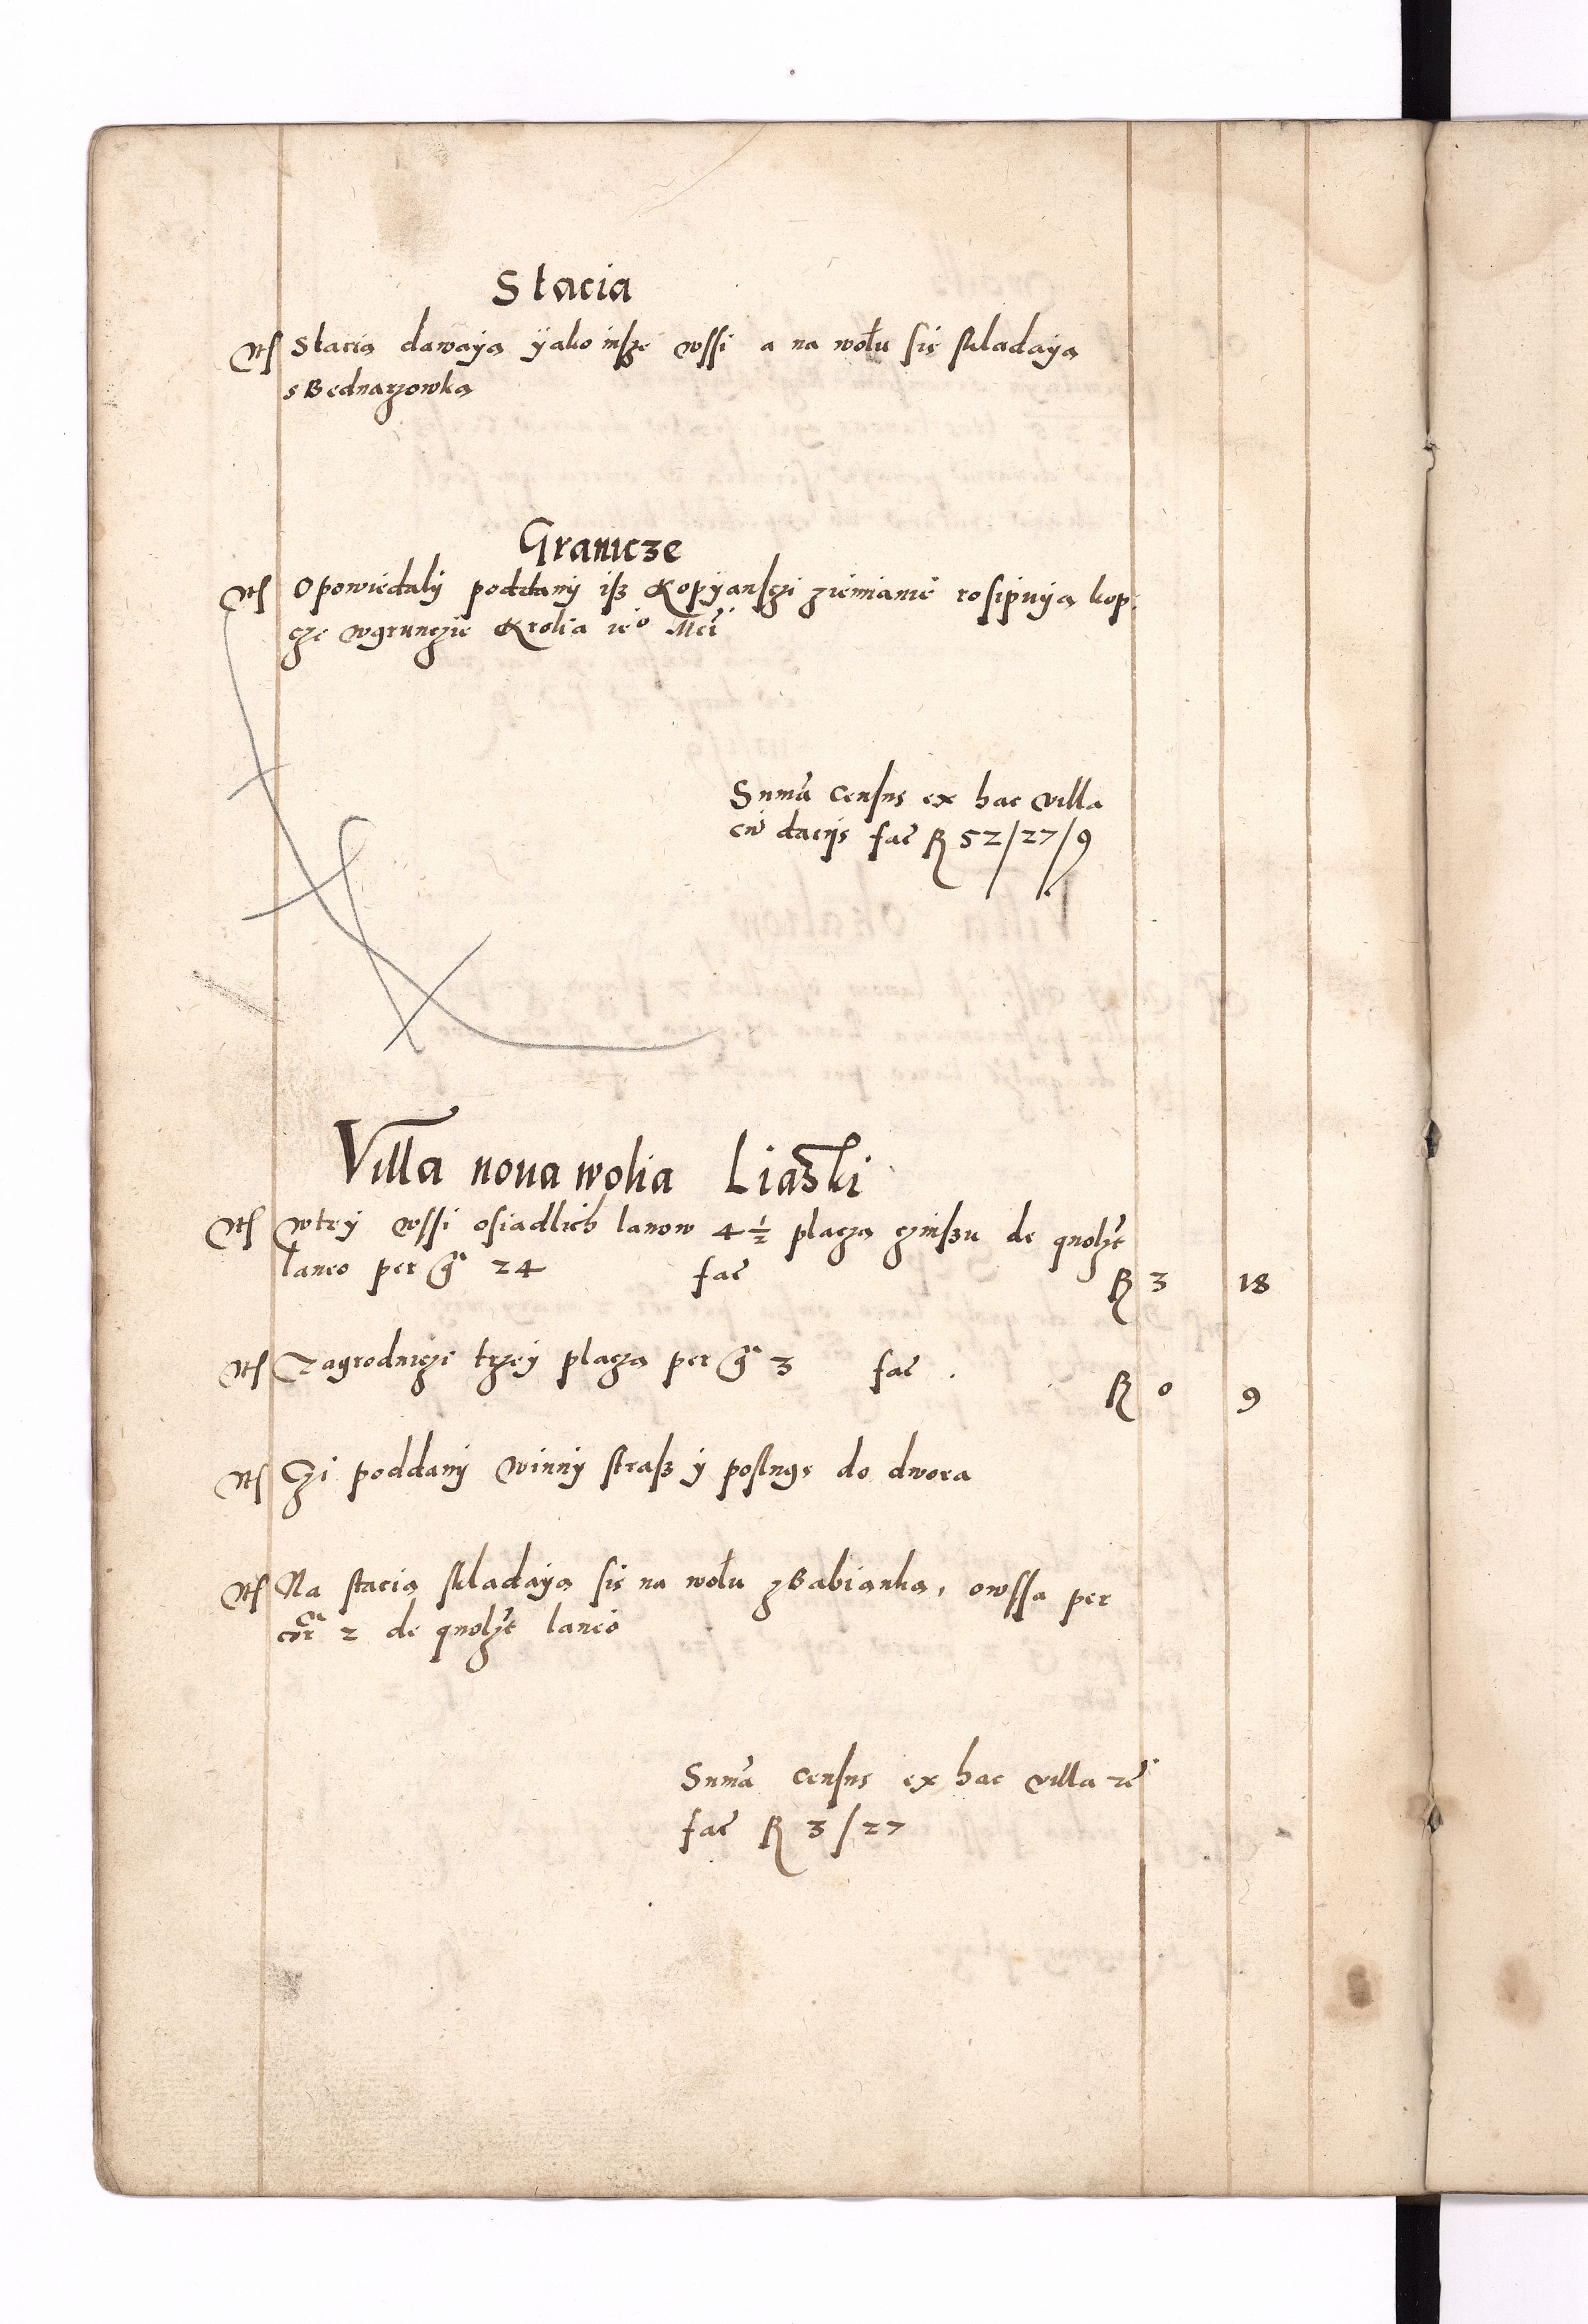 Stacia
Itē Stacią dawaya yako insze wssi a na wołu się składaya
s Bednarzowką
Granicze
Itē Opowiedaly poddany isz Kopyansczi ziemianie rosipuyą kop
cze wgrunczie Krolia ieº Mći
Sumā Census ex hac villa
cū daciis fać R 52/27/9
Villa noua wolia Liaski
Itē Wtey wssi osiadlich lanow 4 ½ placzą czinszu de quolzt
laneo per gͣ 24 fać R 3 18
Itē Zagrodniczi trzey placzą per gͣ 3 fać R 0 9
Itē Czi poddany winny strasz y poslugę do dwora
Itē Na stacią składayą się na wołu z Babianką, owssa per
corͣ 2 de quolzt laneo
Sumā census ex hac villa
fać R 3/27